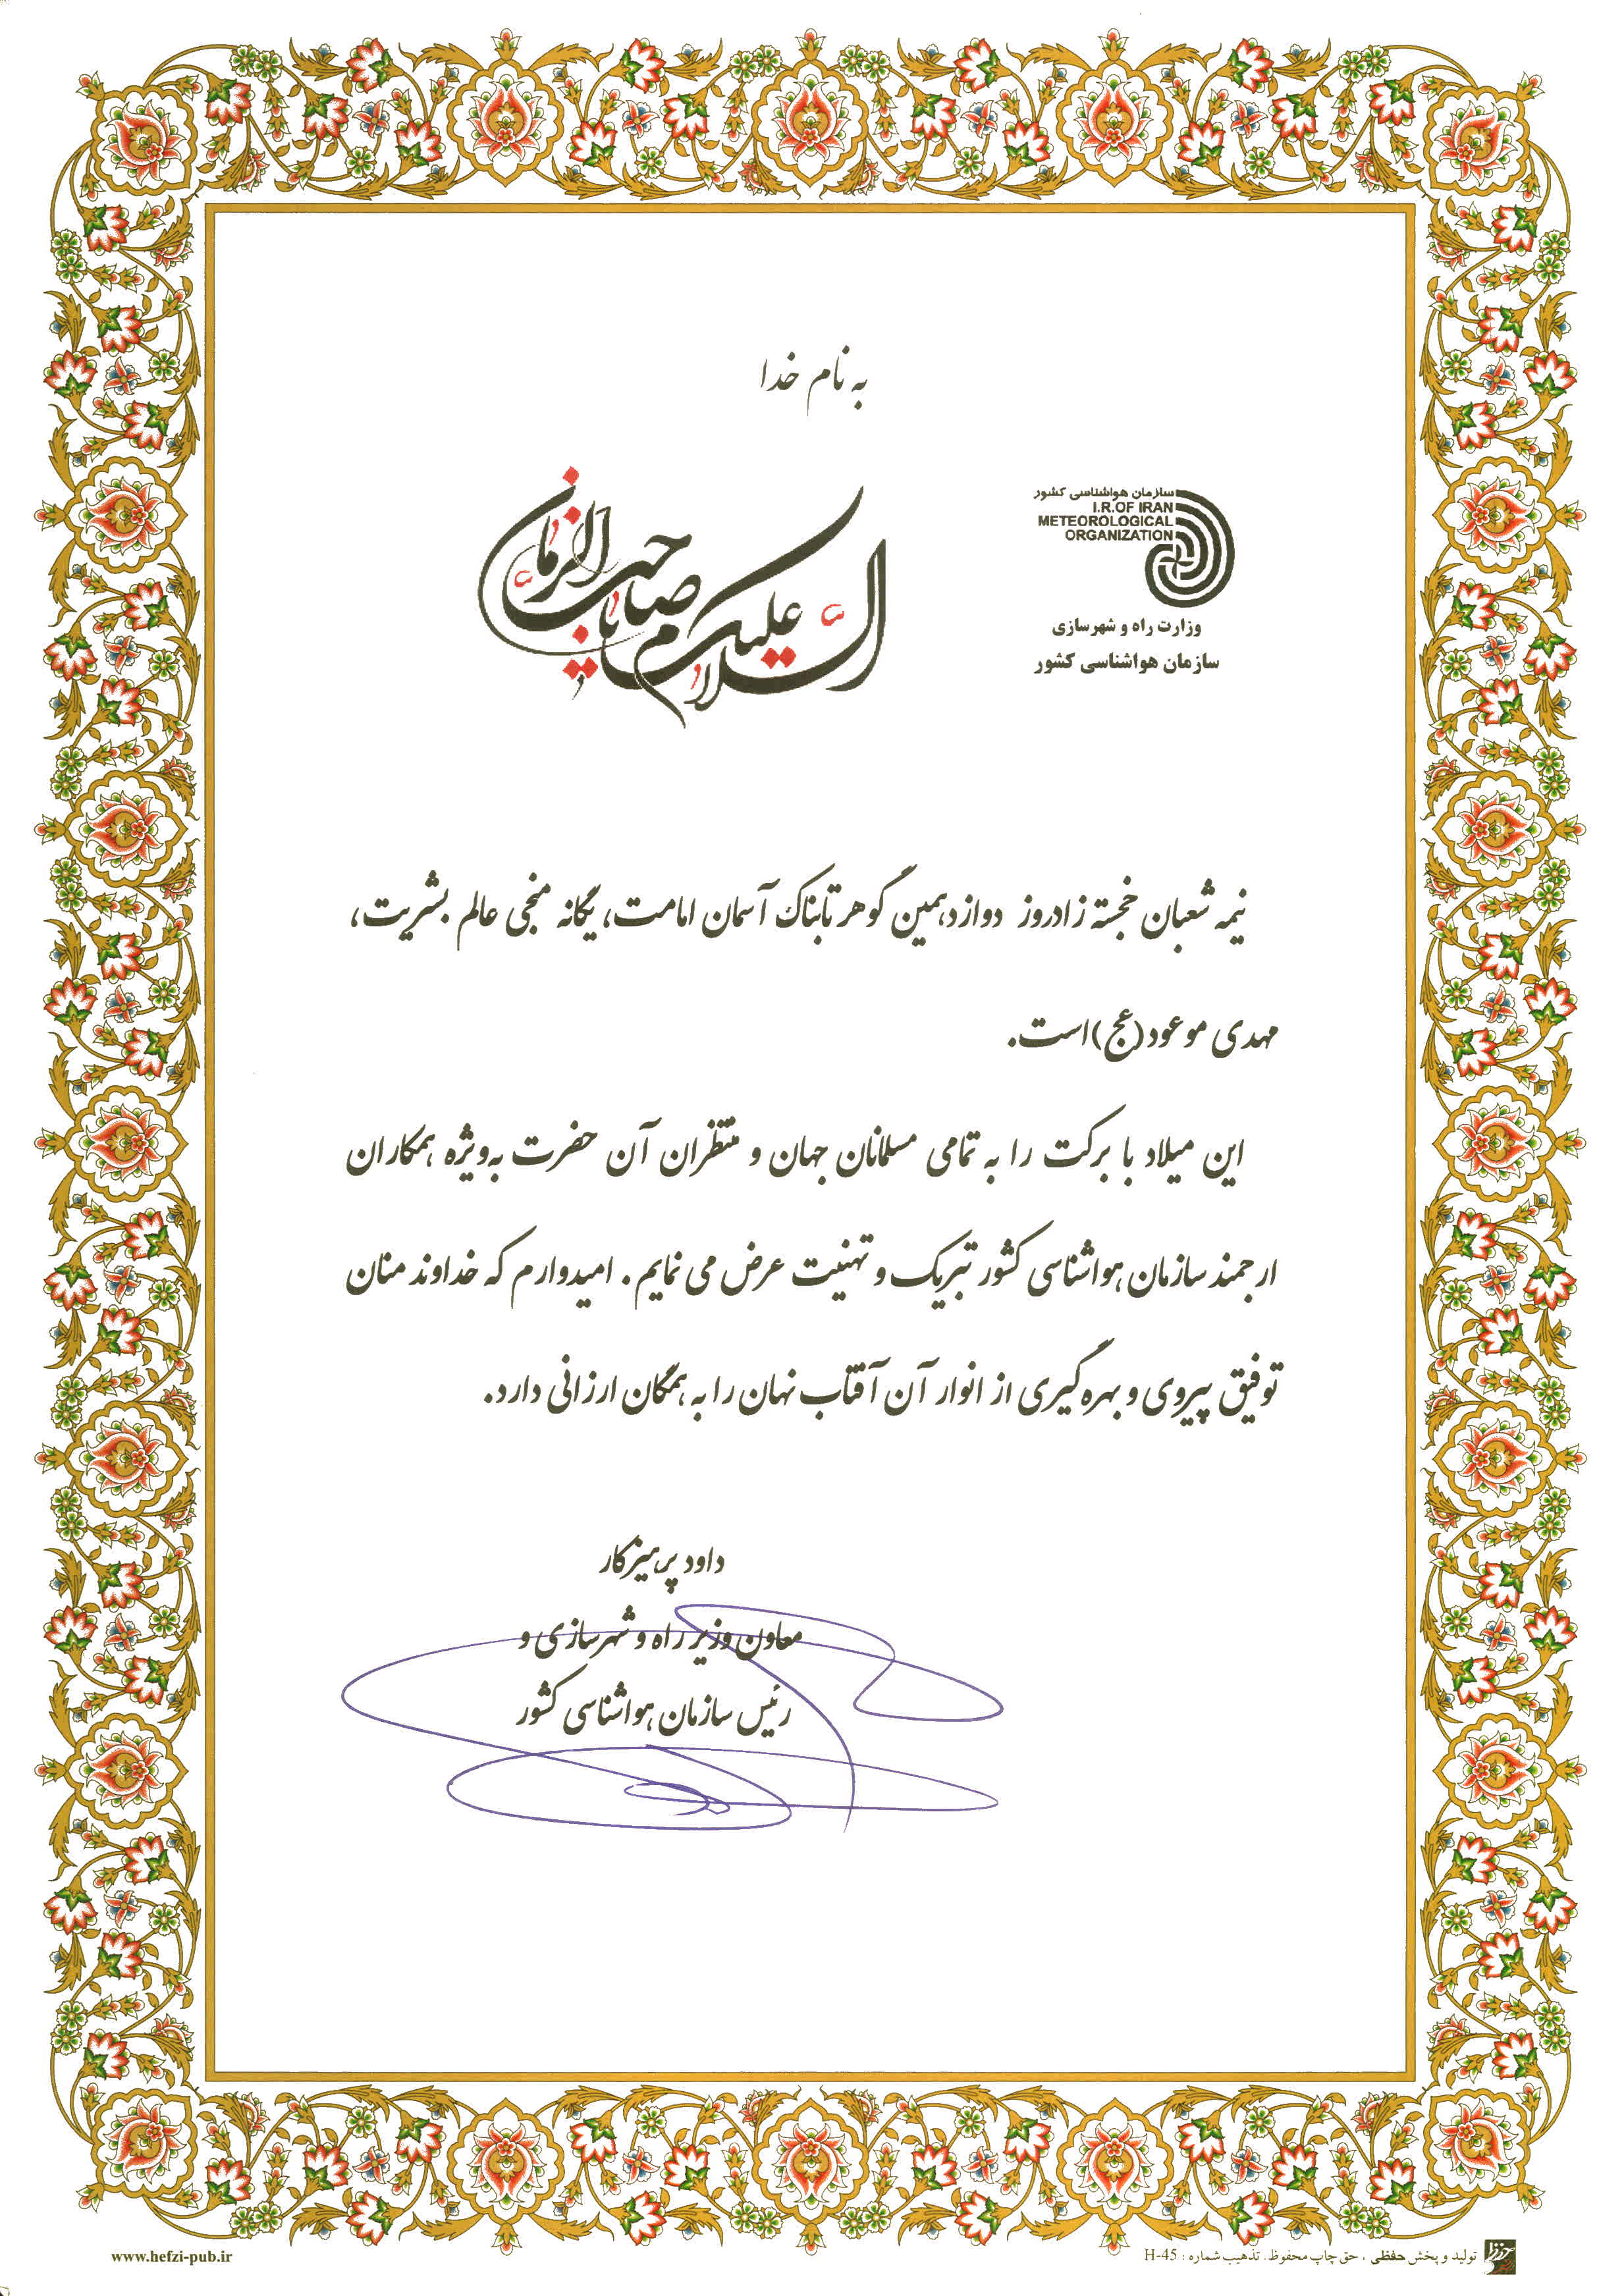 به نام خدا
سازمان هواشناسی کشور
I.R.OF IRAN
METEOROLOGICAL
ORGANIZATION
وزارت راه و شهرسازی
سازمان هواشناسی کشور
السلام علیک یا صاحب الزمان
نیمه شعبان خجسته زادروز دوازدهمین گوهر تابناک آسمان امامت، یگانه منجی عالم بشریت،
مهدی موعود(عج)است.
این میلاد با برکت را به تمامی مسلمانان جهان و منتظران آن حضرت به‌ویژه همکاران
ارجمند سازمان هواشناسی کشور تبریک و تهنیت عرض می نمایم. امیدوارم که خداوند منان
توفیق پیروی و بهره گیری از انوار آن آفتاب نهان را به همگان ارزانی دارد.
داود پرهیزکار
معاون وزیر راه و شهرسازی و
رئیس سازمان هواشناسی کشور
www.hefzi-pub.ir
تولید و پخش حفظی . حق چاپ محفوظ. تذهیب شماره : H-45